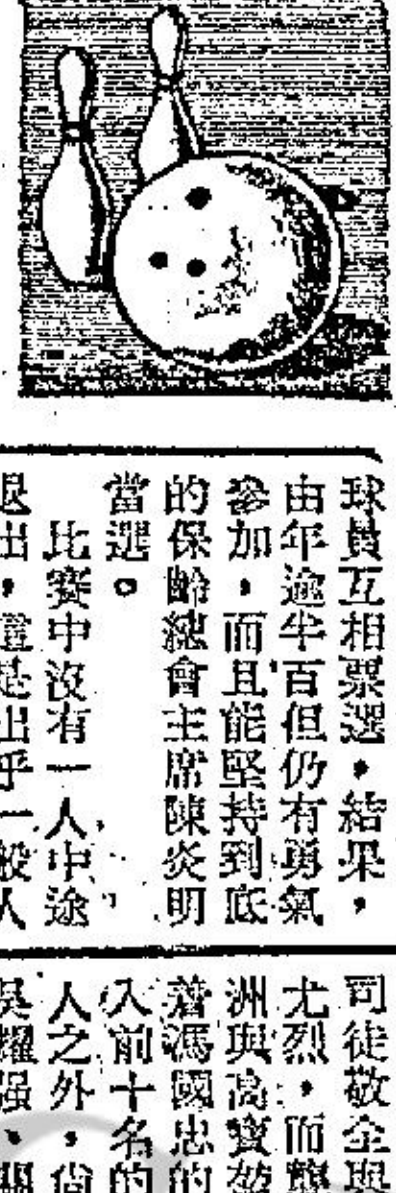 球員互相票選，結果，
由年逾半百但仍有勇氣
參加，而且能堅持到底
的保齡總會主席陳炎明
當選。
比賽中沒有一人中途
退出，這是出乎一般人
司徒敬全與
尤烈，而龔
洲與高寶
著馮國忠的
入前十名的
人之外，尙
吳耀强、